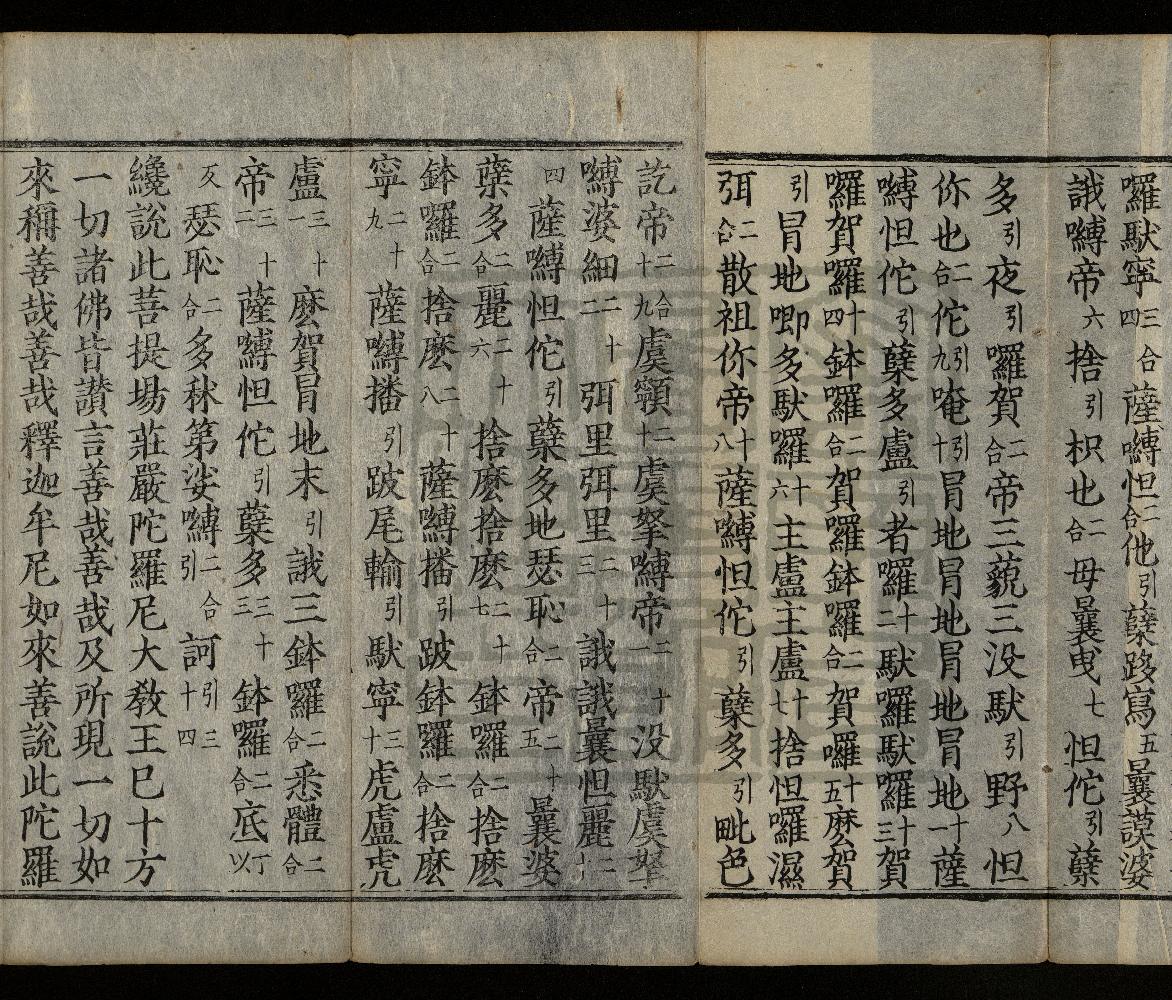 囉馱寧三合四薩嚩怛二合他引蘖路寫五曩謨婆
誐嚩帝六捨引枳也二合母曩曳七怛佗引蘖
多引夜引囉賀二合帝三藐三没馱引野八怛
你也二合佗引九唵引十冐地冐地冐地冐地十一薩
嚩怛佗引蘖多盧引者囉十二馱囉馱囉十三賀
囉賀囉十四鉢囉二合賀囉鉢囉二合賀囉十五麽賀
引冐地唧多馱囉十六主盧主盧十七捨怛囉濕
弭二合散祖你帝十八薩嚩怛佗引蘖多引毗色
訖帝二合十九虞顐二十虞拏嚩帝二十一没馱虞拏
嚩婆細二十二弭里弭里二十三誐誐曩怛麗二十
四薩嚩怛佗引蘖多地瑟恥二合帝二十五曩婆
蘖多二合麗二十六捨麽捨麽二十七鉢囉二合捨麽
鉢囉二合捨麽二十八薩嚩播引跛鉢囉二合捨麽
寧二十九薩嚩播引跛尾輸引馱寧三十虎盧虎
盧三十一麽賀冐地末引誐三鉢囉二合悉體二合
帝三十二薩嚩怛佗引蘖多三十三鉢囉二合底丁以
反瑟恥二合多秫第娑嚩二合引訶引三十四
纔說此菩提場莊嚴陀羅尼大教王已十方
一切諸佛皆讚言善哉善哉及所現一切如
來稱善哉善哉釋迦牟尼如來善說此陀羅